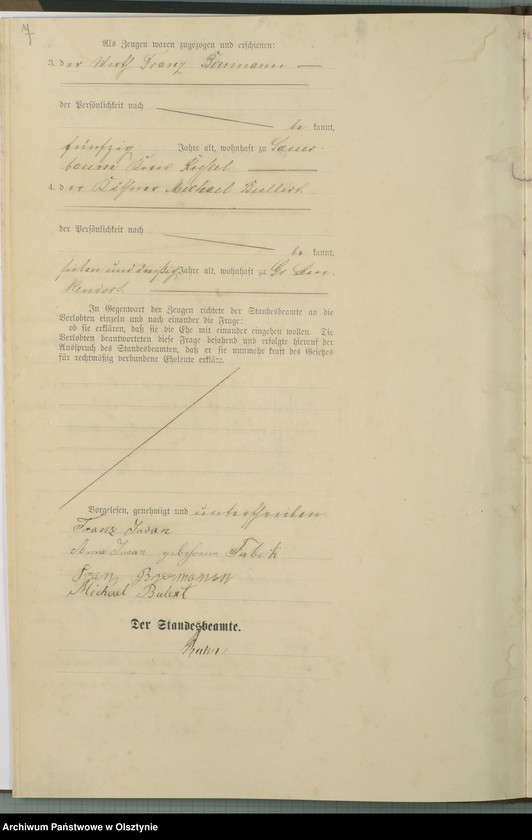 7
Als Zeugen waren zugezogen und erschienen:
3. der Wirth Franz Biermann
der Persönlichkeit nach
be kannt,
fünfzig Jahre alt, wohnhaft zu Sauer-
baum Kreis Rössel
4. der Käthner Michael
der Persönlichkeit nach
be kannt,
sieben und dreißig Jahre alt, wohnhaft zu Gr.
In Gegenwart der Zeugen richtete der Standesbeamte an die
Verlobten einzeln und nach einander die Frage:
ob sie erklären, daß sie die Ehe mit einander eingehen wollen. Die
Verlobten beantworteten diese Frage bejahend und erfolgte hierauf der
Ausspruch des Standesbeamten, daß er sie nunmehr kraft des Gesetzes
für rechtmäßig verbundene Eheleute erkläre.
Vorgelesen, genehmigt und unterschrieben
Franz
geborene
Michael Bulert
Der Standesbeamte.
Archiwum Państwowe w Olsztynie